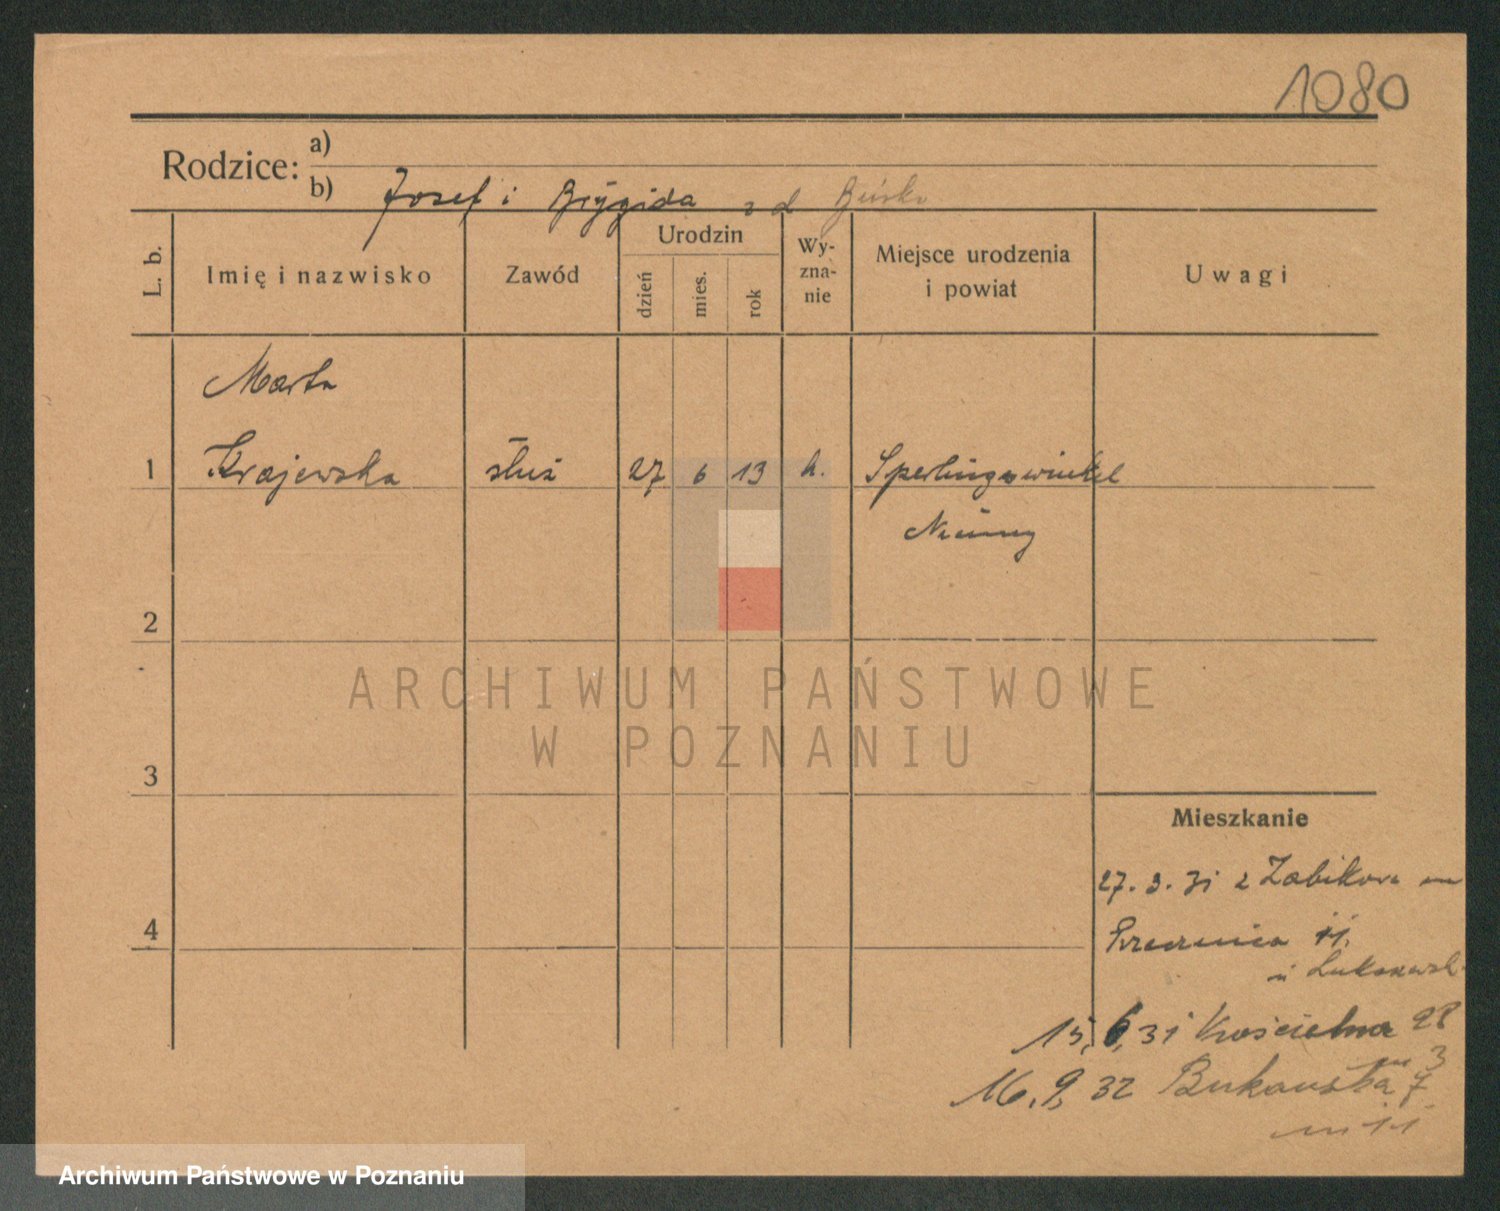 1080
Rodzice: a)
b) Josef i Brygida z d
Urodzin
L. b.
Imię i nazwisko
Zawód
dzień
mies.
rok
Wy-
zna-
nie
Miejsce urodzenia
i powiat
Uwagi
Marta
1 Krajewska służ 27 6 13 k. Sperlingswinkel
Niemcy
2
3
4
ARCHIWUM PAŃSTWOWE
W POZNANIU
Mieszkanie
27. 3. 31 z Żabikowa
11.
15, 6, 31 Kościelna 28
m 3
16. 9, 32 Bukowska 7
m 11
Archiwum Państwowe w Poznaniu